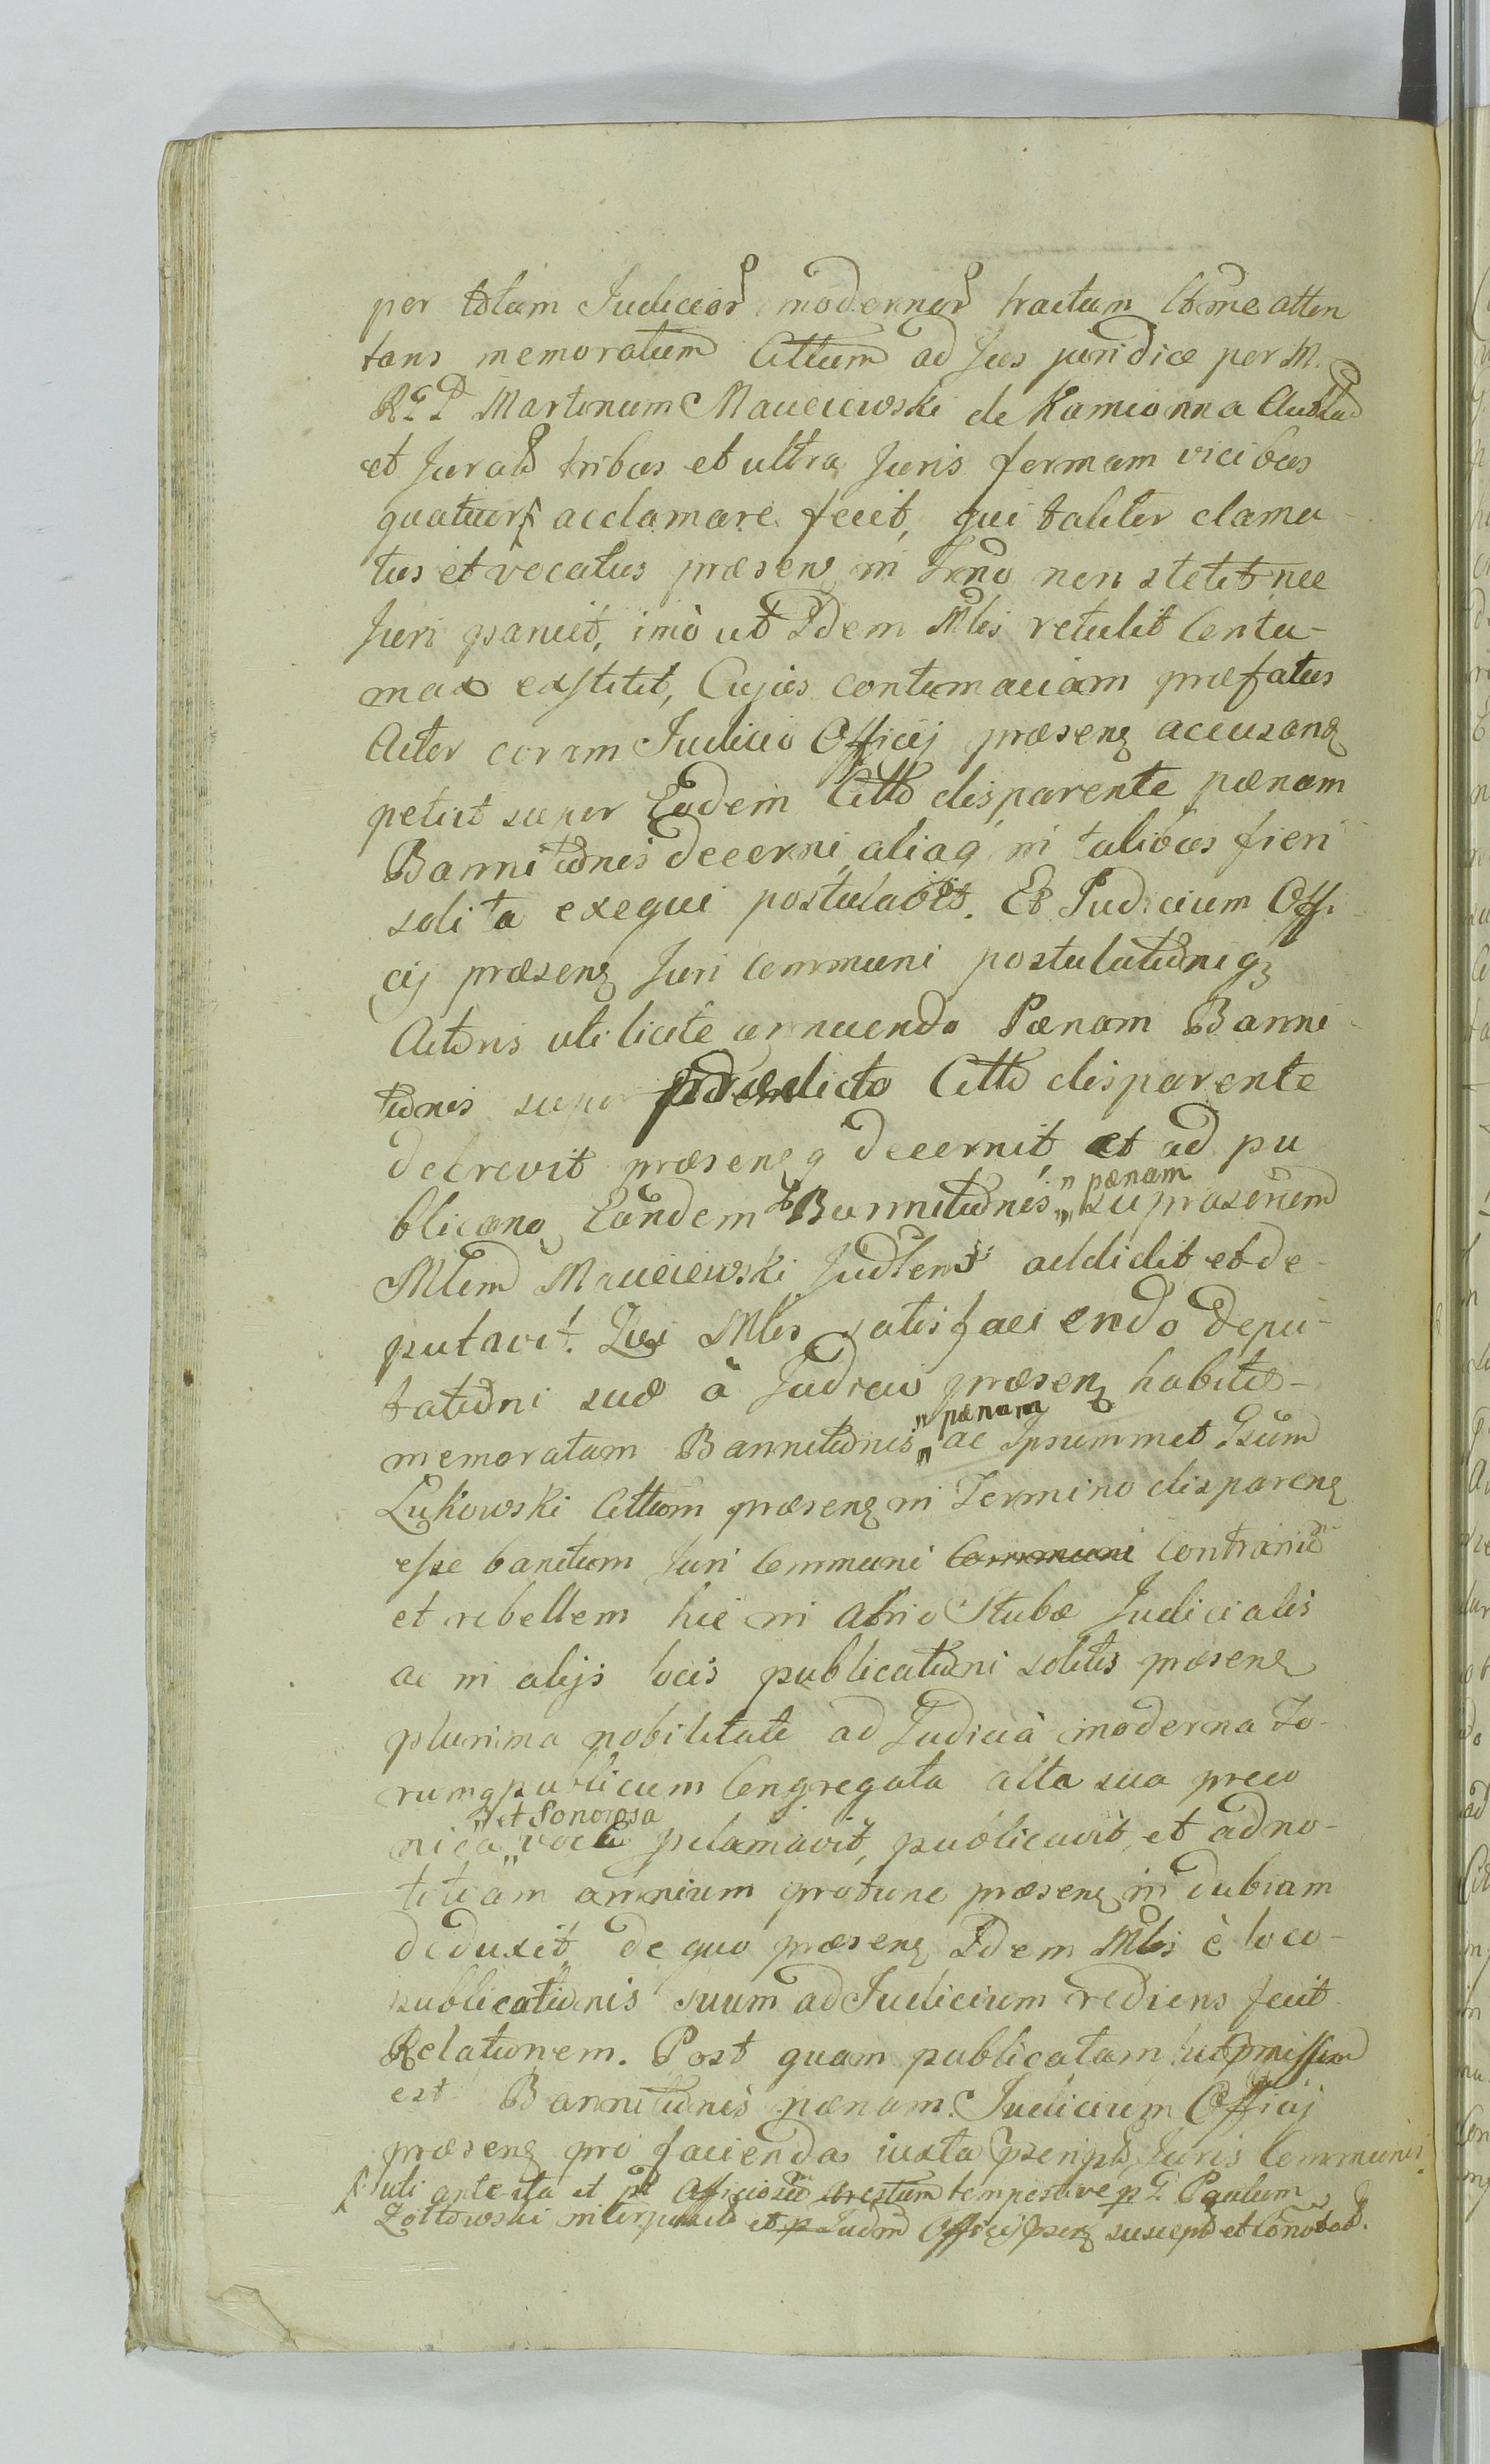 per totam Judicior modernor tractum Ctme atten
tans memoratum Cittum ad Jus juridice per M.
RGD Martinum Macieiewski de Kamionna Austd
et Jurat tribus et ultra Juris formam vicibus
quatuor acclamare fecit, qui taliter clama-
tus et vocatus præsens in Trno non stetit nec
Juri paruit, imò ut Idem Mlis retulit Contu-
max exstitit, Cujus contumaciam præfatus
Actor coram Judicio Officij præsens accusans
petiit super Eodem Citto disparente pænam
Bannitionis decerni, aliaq in talibus fieri
solita exequi postulavit. Et Judicium Offi-
cij præsens Juri Communi postulationiq
Actoris uti licite annuendo Pænam Banni-
tionis super prædicto Citto disparente
decrevit præsensq decernit et ad pu
blicand Eandem Bannitionis „ pænam suprascriem
Mlem Macieiewski Judlem addidit et de-
putavit. Qui Mlis satisfaciendo depu-
tationi suæ à Judicio præsens habitæ-
memoratam Bannitionis „ pænam ac Ipsummet Gsum
Lukowski Cittum præsens in Termino disparens
esse banitum Juri Communi Communi Contrariu
et rebellem hic in atrio Stubæ Judicialis
ac in alijs locis publicationi solitis præsens
plurima nobilitate ad Judicià moderna Fo-
rumq publicum Congregata alta sua preco
nica „ et Sonorosa voce pclamavit, publicavit, et ad no-
titiam omnium protunc præsens in dubiam
deduxit, de quo præsens Idem Mlis è loco-
publicationis suum ad Judicium rediens fecit
Relationem. Post quam publicatam ut pmissum
est Bannitionis pænam. Judicium Officij
præsens pro facienda iuxta pscript Juris Communis
uti ante ita et pt Officiosu arestum tempestive p G. Paulum
Zołtowski interpositu et p Judm Officij psens suscept et Conotat.